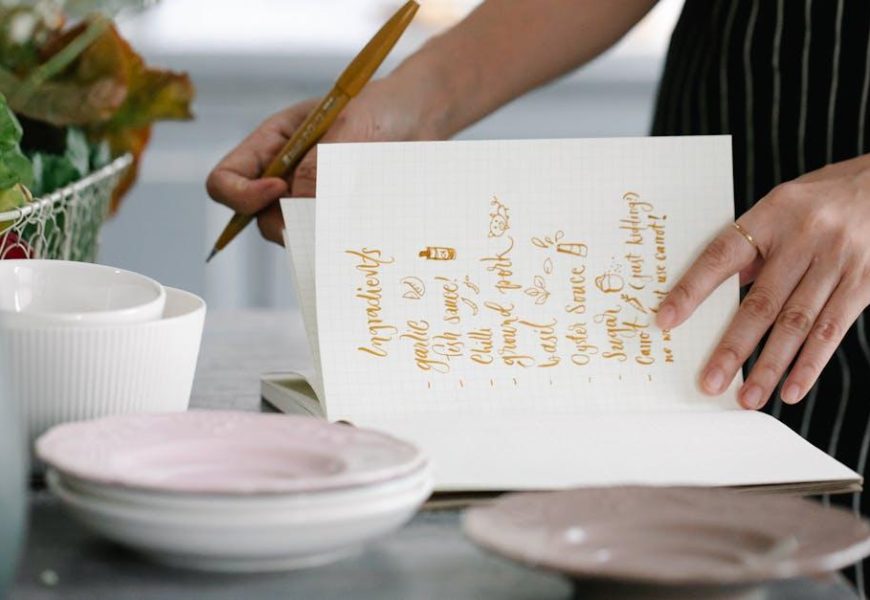 Ingredients
- garlic
- fish sauce!
- chilli
- ground pork
- basil
- Oyster Sauce
- Sugar
- Carrot (just kidding)
no use carrot!